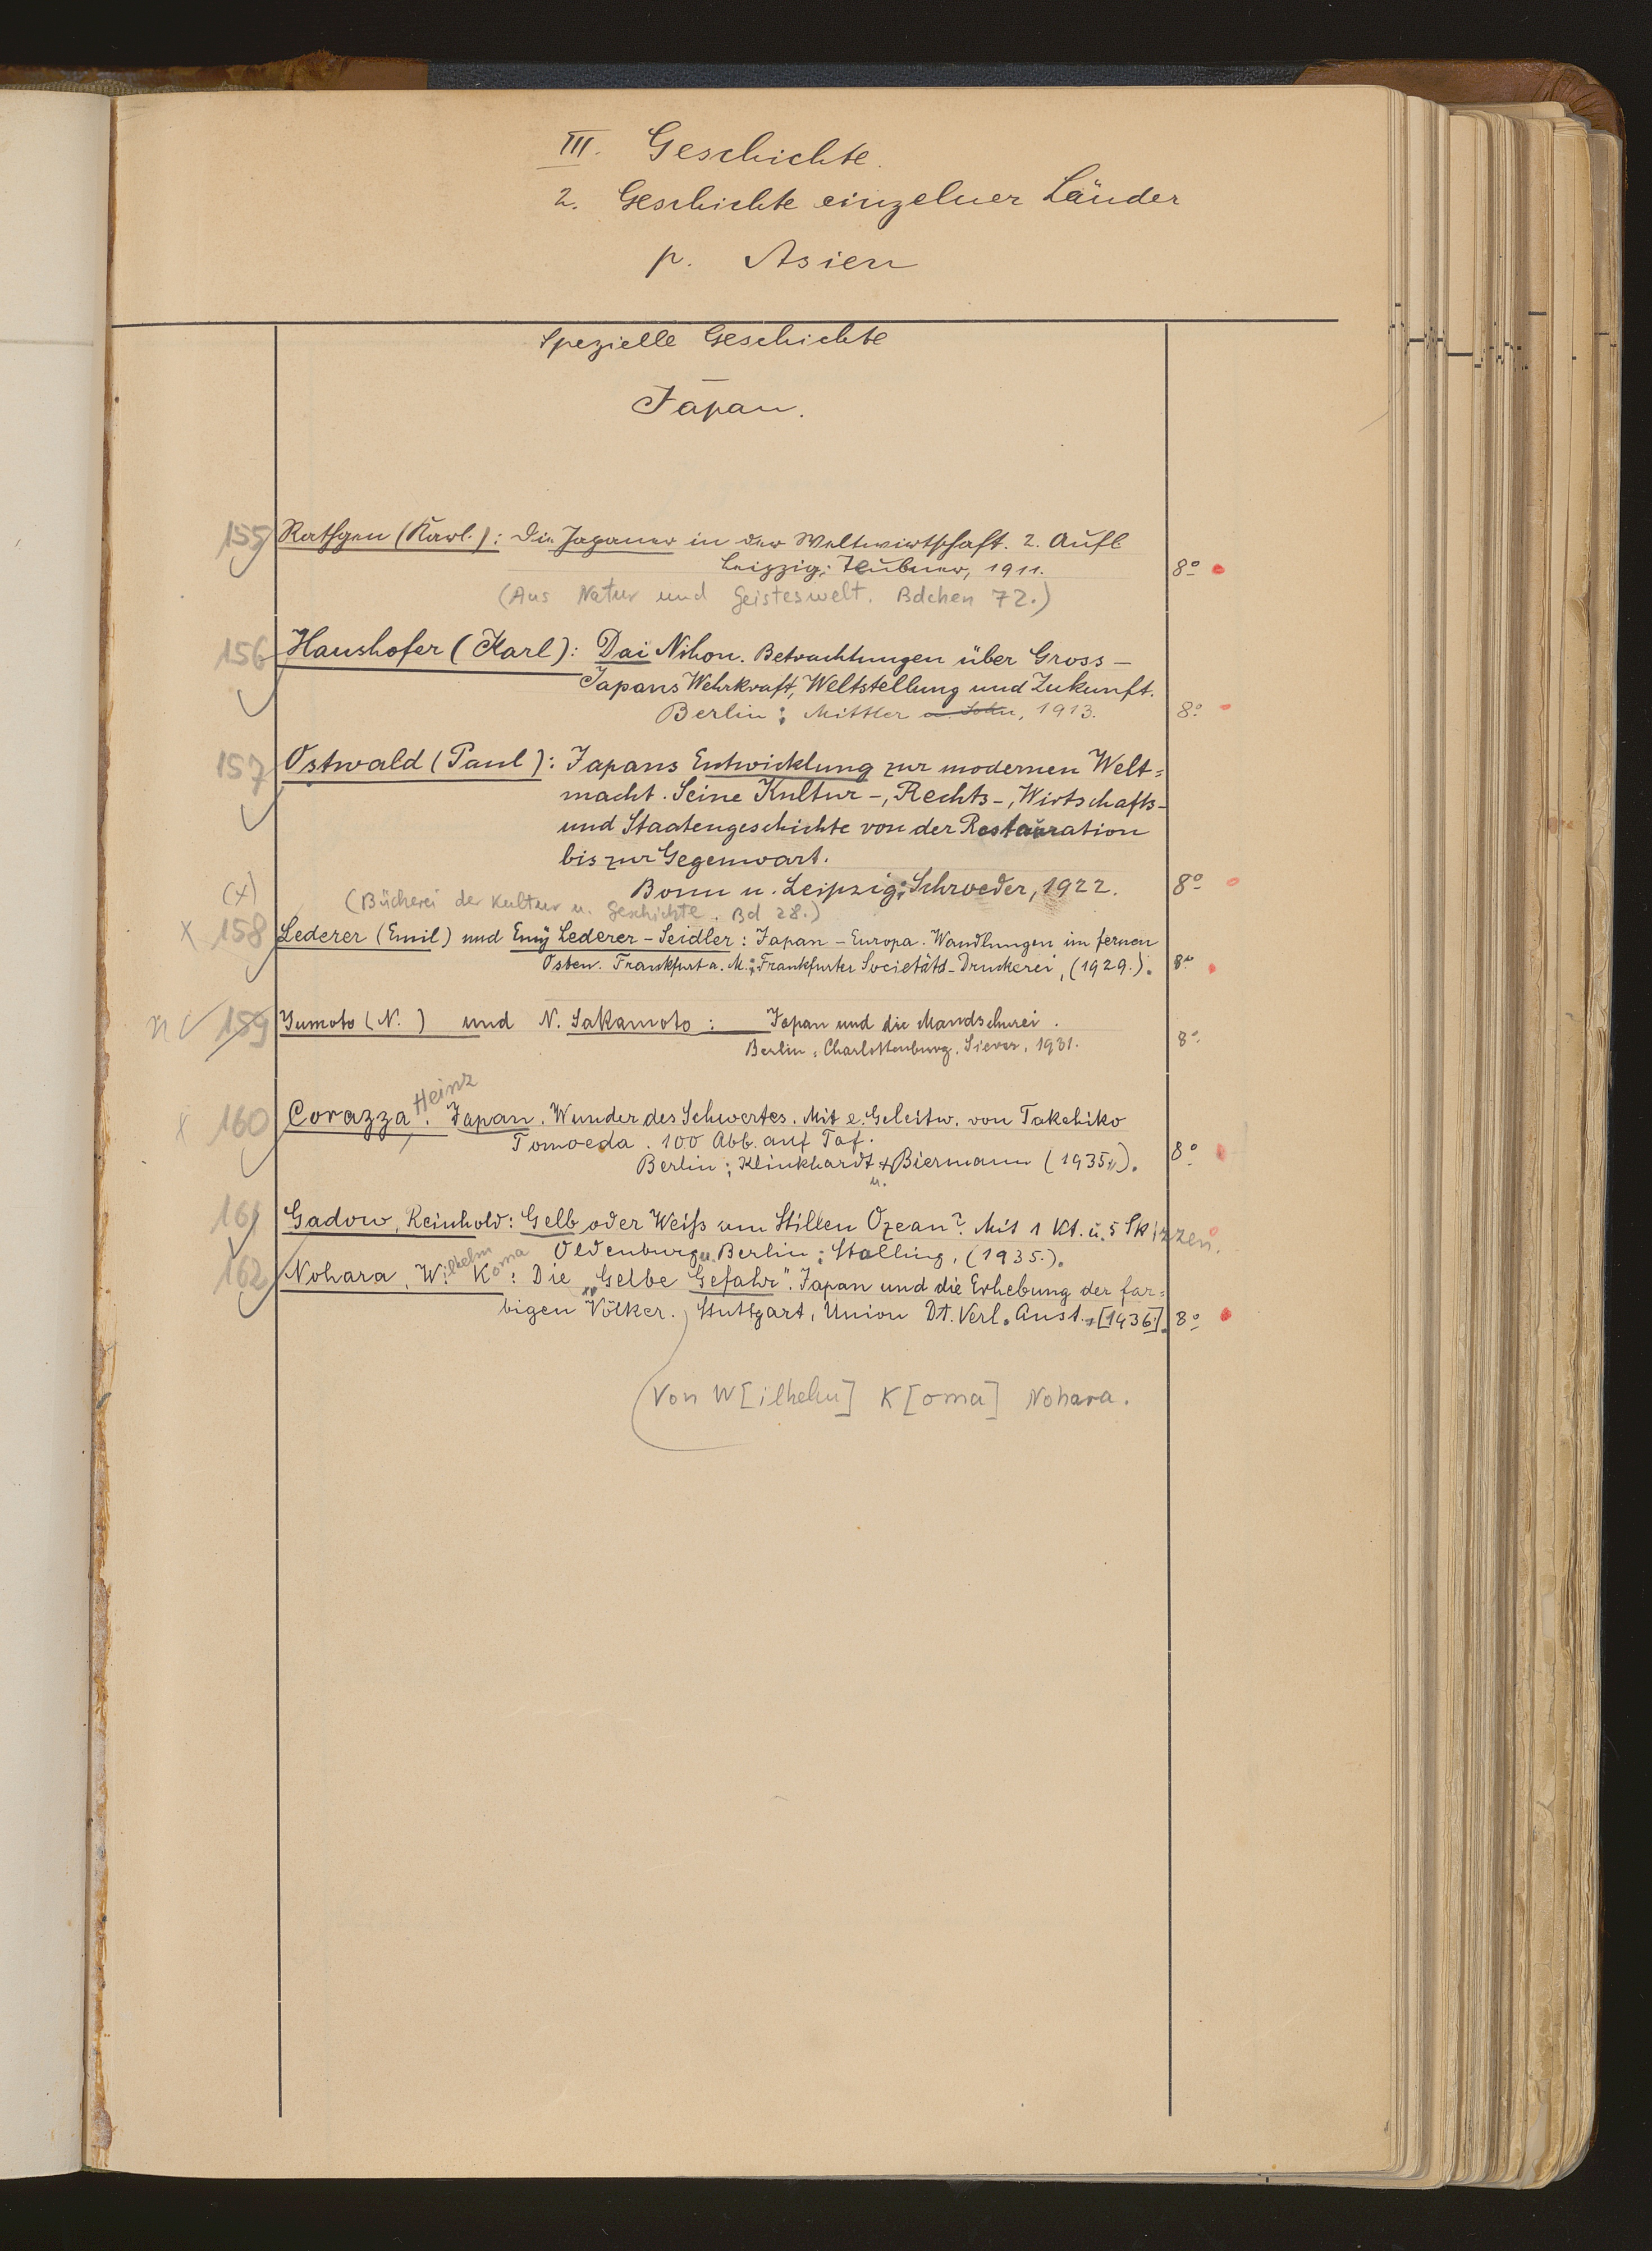 III. Geschichte.
2. Geschichte einzelner Länder
p. Asien
Spezielle Geschichte
Japan.
155 Rathgen (Karl.): Die Japaner in der Weltwirtschaft. 2. Aufl.
Leipzig: Teubner, 1911. 8°
(Aus Natur und Geisteswelt. Bdchen 72.)
156 Haushofer (Karl): Dai Nihon. Betrachtungen über Gross-
Japans Wehrkraft, Weltstellung und Zukunft.
Berlin: Mittler u. Sohn, 1913. 8°
157 Ostwald (Paul): Japans Entwicklung zur modernen Welt=
macht. Seine Kultur-, Rechts-, Wirtschafts-
und Staatengeschichte von der Restauration
bis zur Gegenwart.
Bonn u. Leipzig: Schroeder, 1922. 8°
(x) (Bücherei der Kultur u. Geschichte. Bd 28.)
x 158 Lederer (Emil) und Emy Lederer-Seidler: Japan-Europa. Wandlungen im fernen
Osten. Frankfurt a. M.: Frankfurter Societäts-Druckerei, (1929.). 8°
n 159 Yumoto (N. ) und N. Sakamoto: Japan und die Mandschurei.
Berlin, Charlottenburg, Siever, 1931. 8°
Heinz
x 160 Corazza. Japan. Wunder des Schwertes. Mit e. Geleitw. von Takehiko
Tomoeda. 100 Abb. auf Taf.
Berlin: Klinkhardt & Biermann (1935). 8°
u.
161 Gadow, Reinhold: Gelb oder Weiß am Stillen Ozean? Mit 1 Kt. u. 5 Skizzen.
Oldenburg u. Berlin: Stalling, (1935.).
162 Nohara, Wilhelm Koma: Die "Gelbe Gefahr". Japan und die Erhebung der far=
bigen Völker. Stuttgart, Union Dt. Verl. Anst. [1936]. 8°
(Von W[ilhelm] K[oma] Nohara.